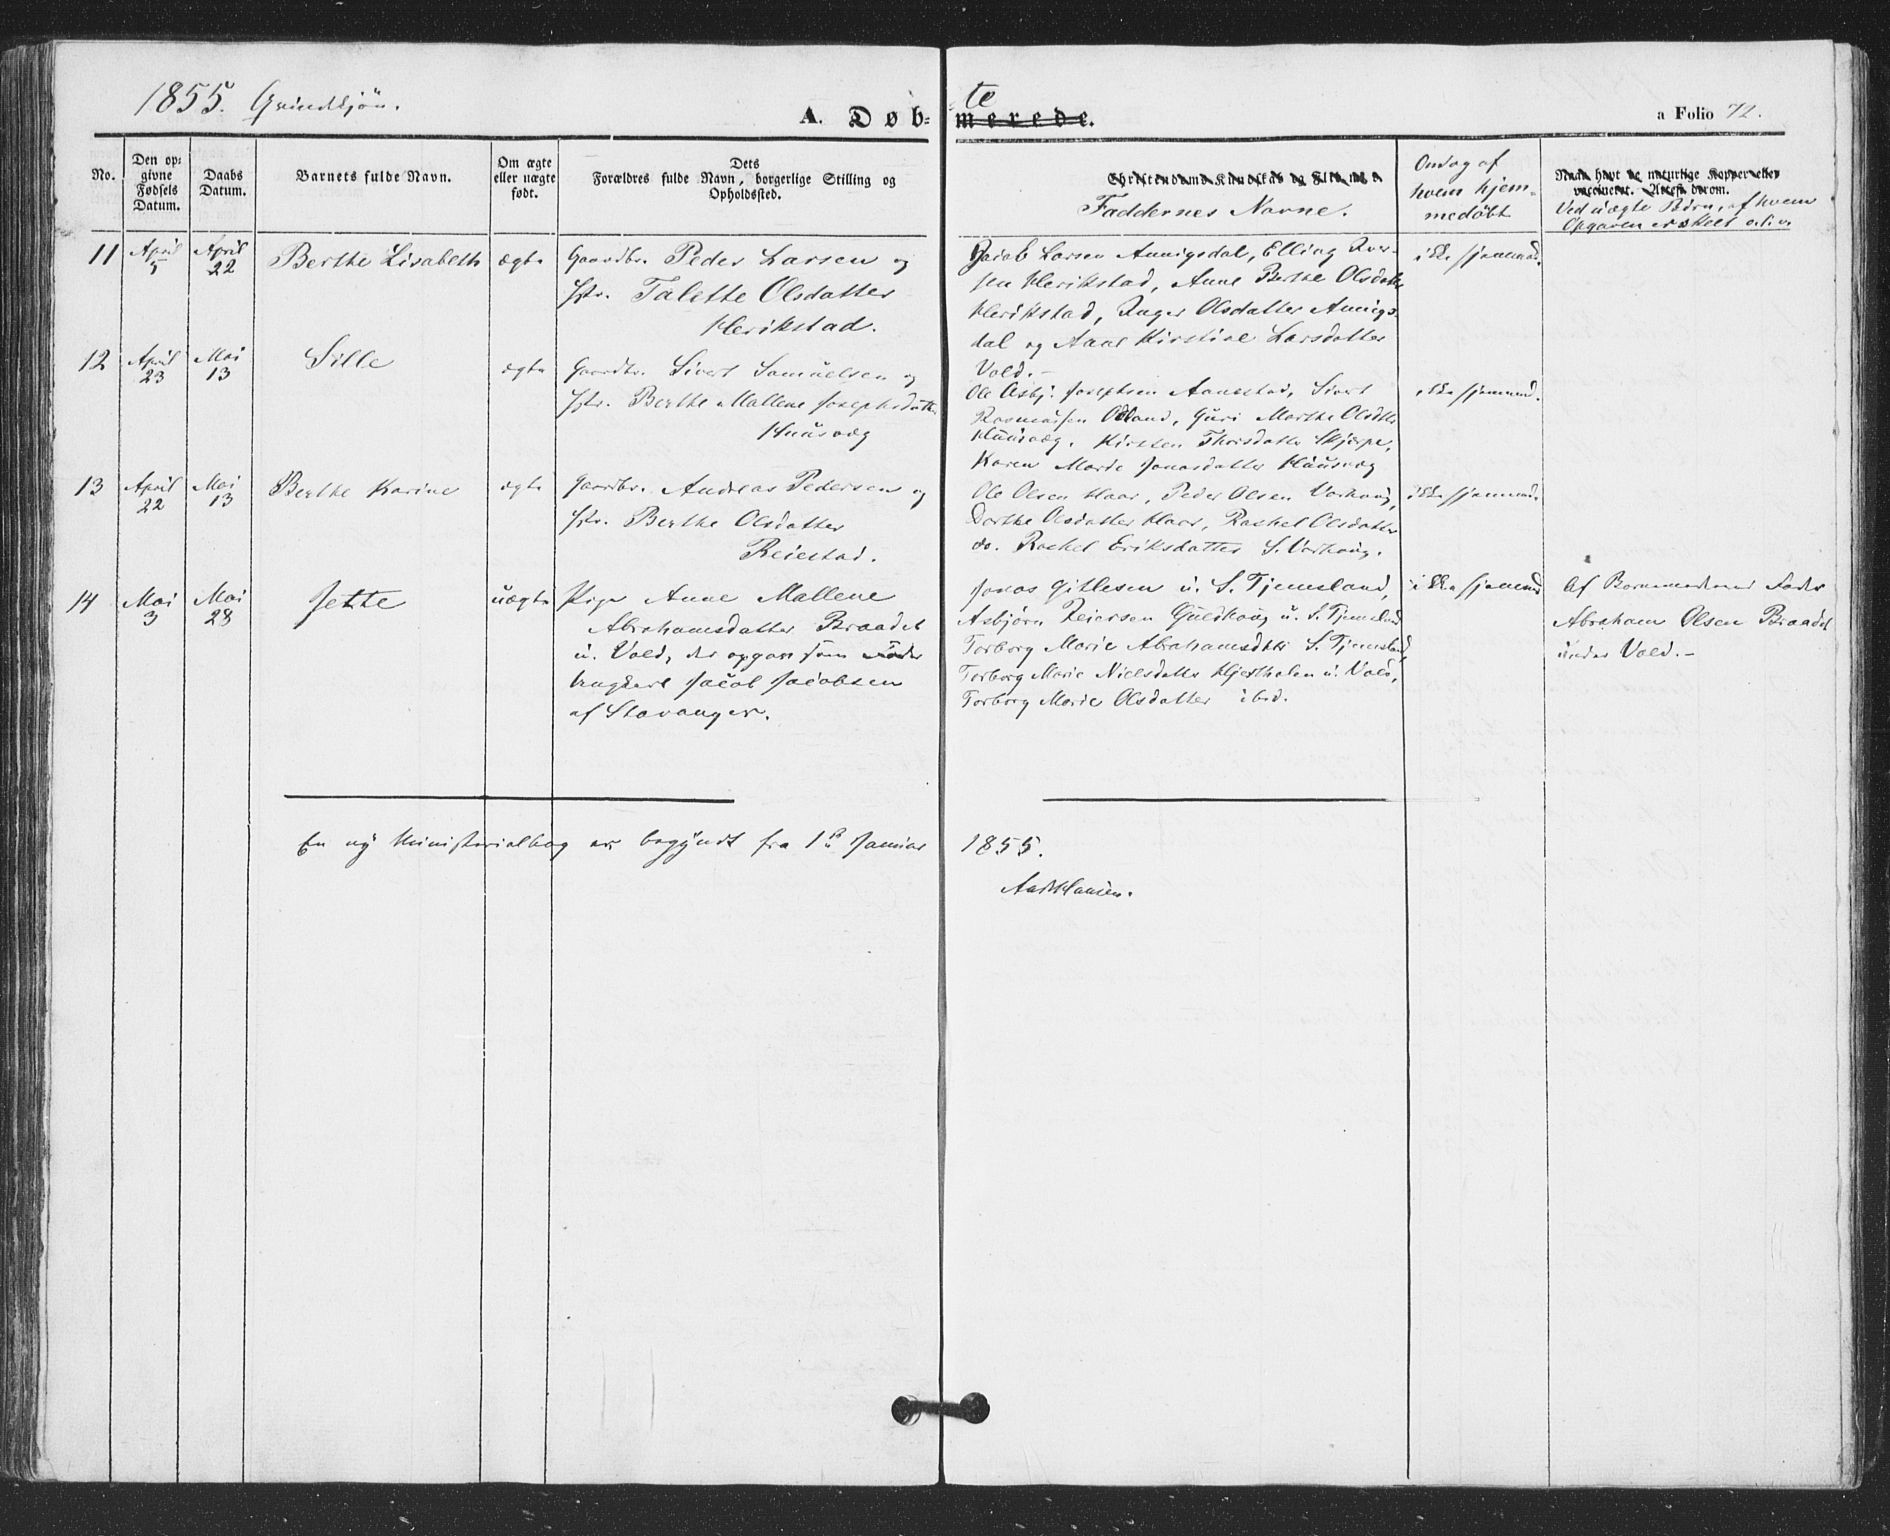 1855. Grindkjön.
A. Døb=
te
merede.
a Folio 72.
No.
Den op=
givne
Fødsels
Datum.
Daabs
Datum.
Barnets fulde Navn.
Om ægte
eller uægte
født.
Dets
Forældres fulde Navn, borgerlige Stilling og
Opholdssted.
Faddernes Navne.
Omdag af
hvem hjem=
medöbt
Ved uægte Börn, af hvem
Opgaven er skeet
11
April
5
April
22
Berthe Lisabeth
ægte
Gaardbr. Peder Larsen og
Hstr. Talette Olsdatter
Herikstad.
Jacob Larsen Aunigsdal, Elling Iver=
sen Herikstad, Anne Berthe Olsdatter
Herikstad, Inger Olsdatter Aunigs=
dal og Aane Kirstine Larsdatter
Vold.-
ikke hjemmed.
12
April
23
Mai
13
Sille
ægte
Gaardbr. Sivert Samuelsen og
Hstr. Berthe Mallene Josephsdatt.
Huusvæg
Ole Asbj. Josephsen Aanestad, Sivert
Rasmussen Odland, Guri Marthe Olsdttr
Huusvæg, Kirsten Thorsdattr Skjærpe,
Karen Marie Jonasdatter Huusvæg
ikke hjemmed.
13
April
22
Mai
13
Berthe Karine
ægte
Gaardbr. Andreas Pedersen og
Hstr. Berthe Olsdatter
Reiestad.
Ole Olsen Haar, Peder Olsen Varhoug,
Dorthe Olsdatter Haar, Rachel Olsdatter
do. Rachel Eriksdatter S. Varhoug.
ikke hjemmed.
14
Mai
3
Mai
28
Jette
uægte
Pige Anne Mallene
Abrahamsdatter Braadet
u. Vold, der opgav som Fader
Ungkarl Jacob Jacobsen
af Stavanger.
Jonas Gitlesen u. S. Tjemsland,
Asbjörn Reiersen Guldhoug u. S. Tjemsland
Torborg Marie Abrahamsdttr S. Tjemsland,
Torborg Marie Nielsdattr Hjerthalen u. Vold,
Torborg Marie Olsdatter ibid.
ikke hjemmed
Af Barnemoderens Fader
Abraham Olsen Braadet
under Vold.-
En ny Ministerialbog er begyndt fra 1ste Januar 1855.